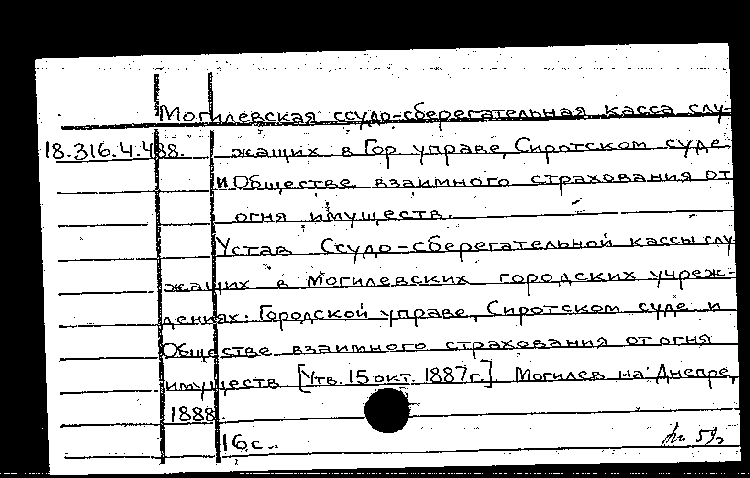 Могилевская ссудо-сберегательная касса слу-
18.316.4.488. жащих в Гор управе, Сиротском суде
и Обществе взаимного страхования от
огня имуществ.
Устав Ссудо-сберегательной кассы слу
жащих в Могилевских городских учреж-
дениях: Городской управе, Сиротском суде и
Обществе взаимного страхования от огня
имуществ [Утв. 15 окт. 1887 г.] Могилев на Днепре,
1888
16 с.